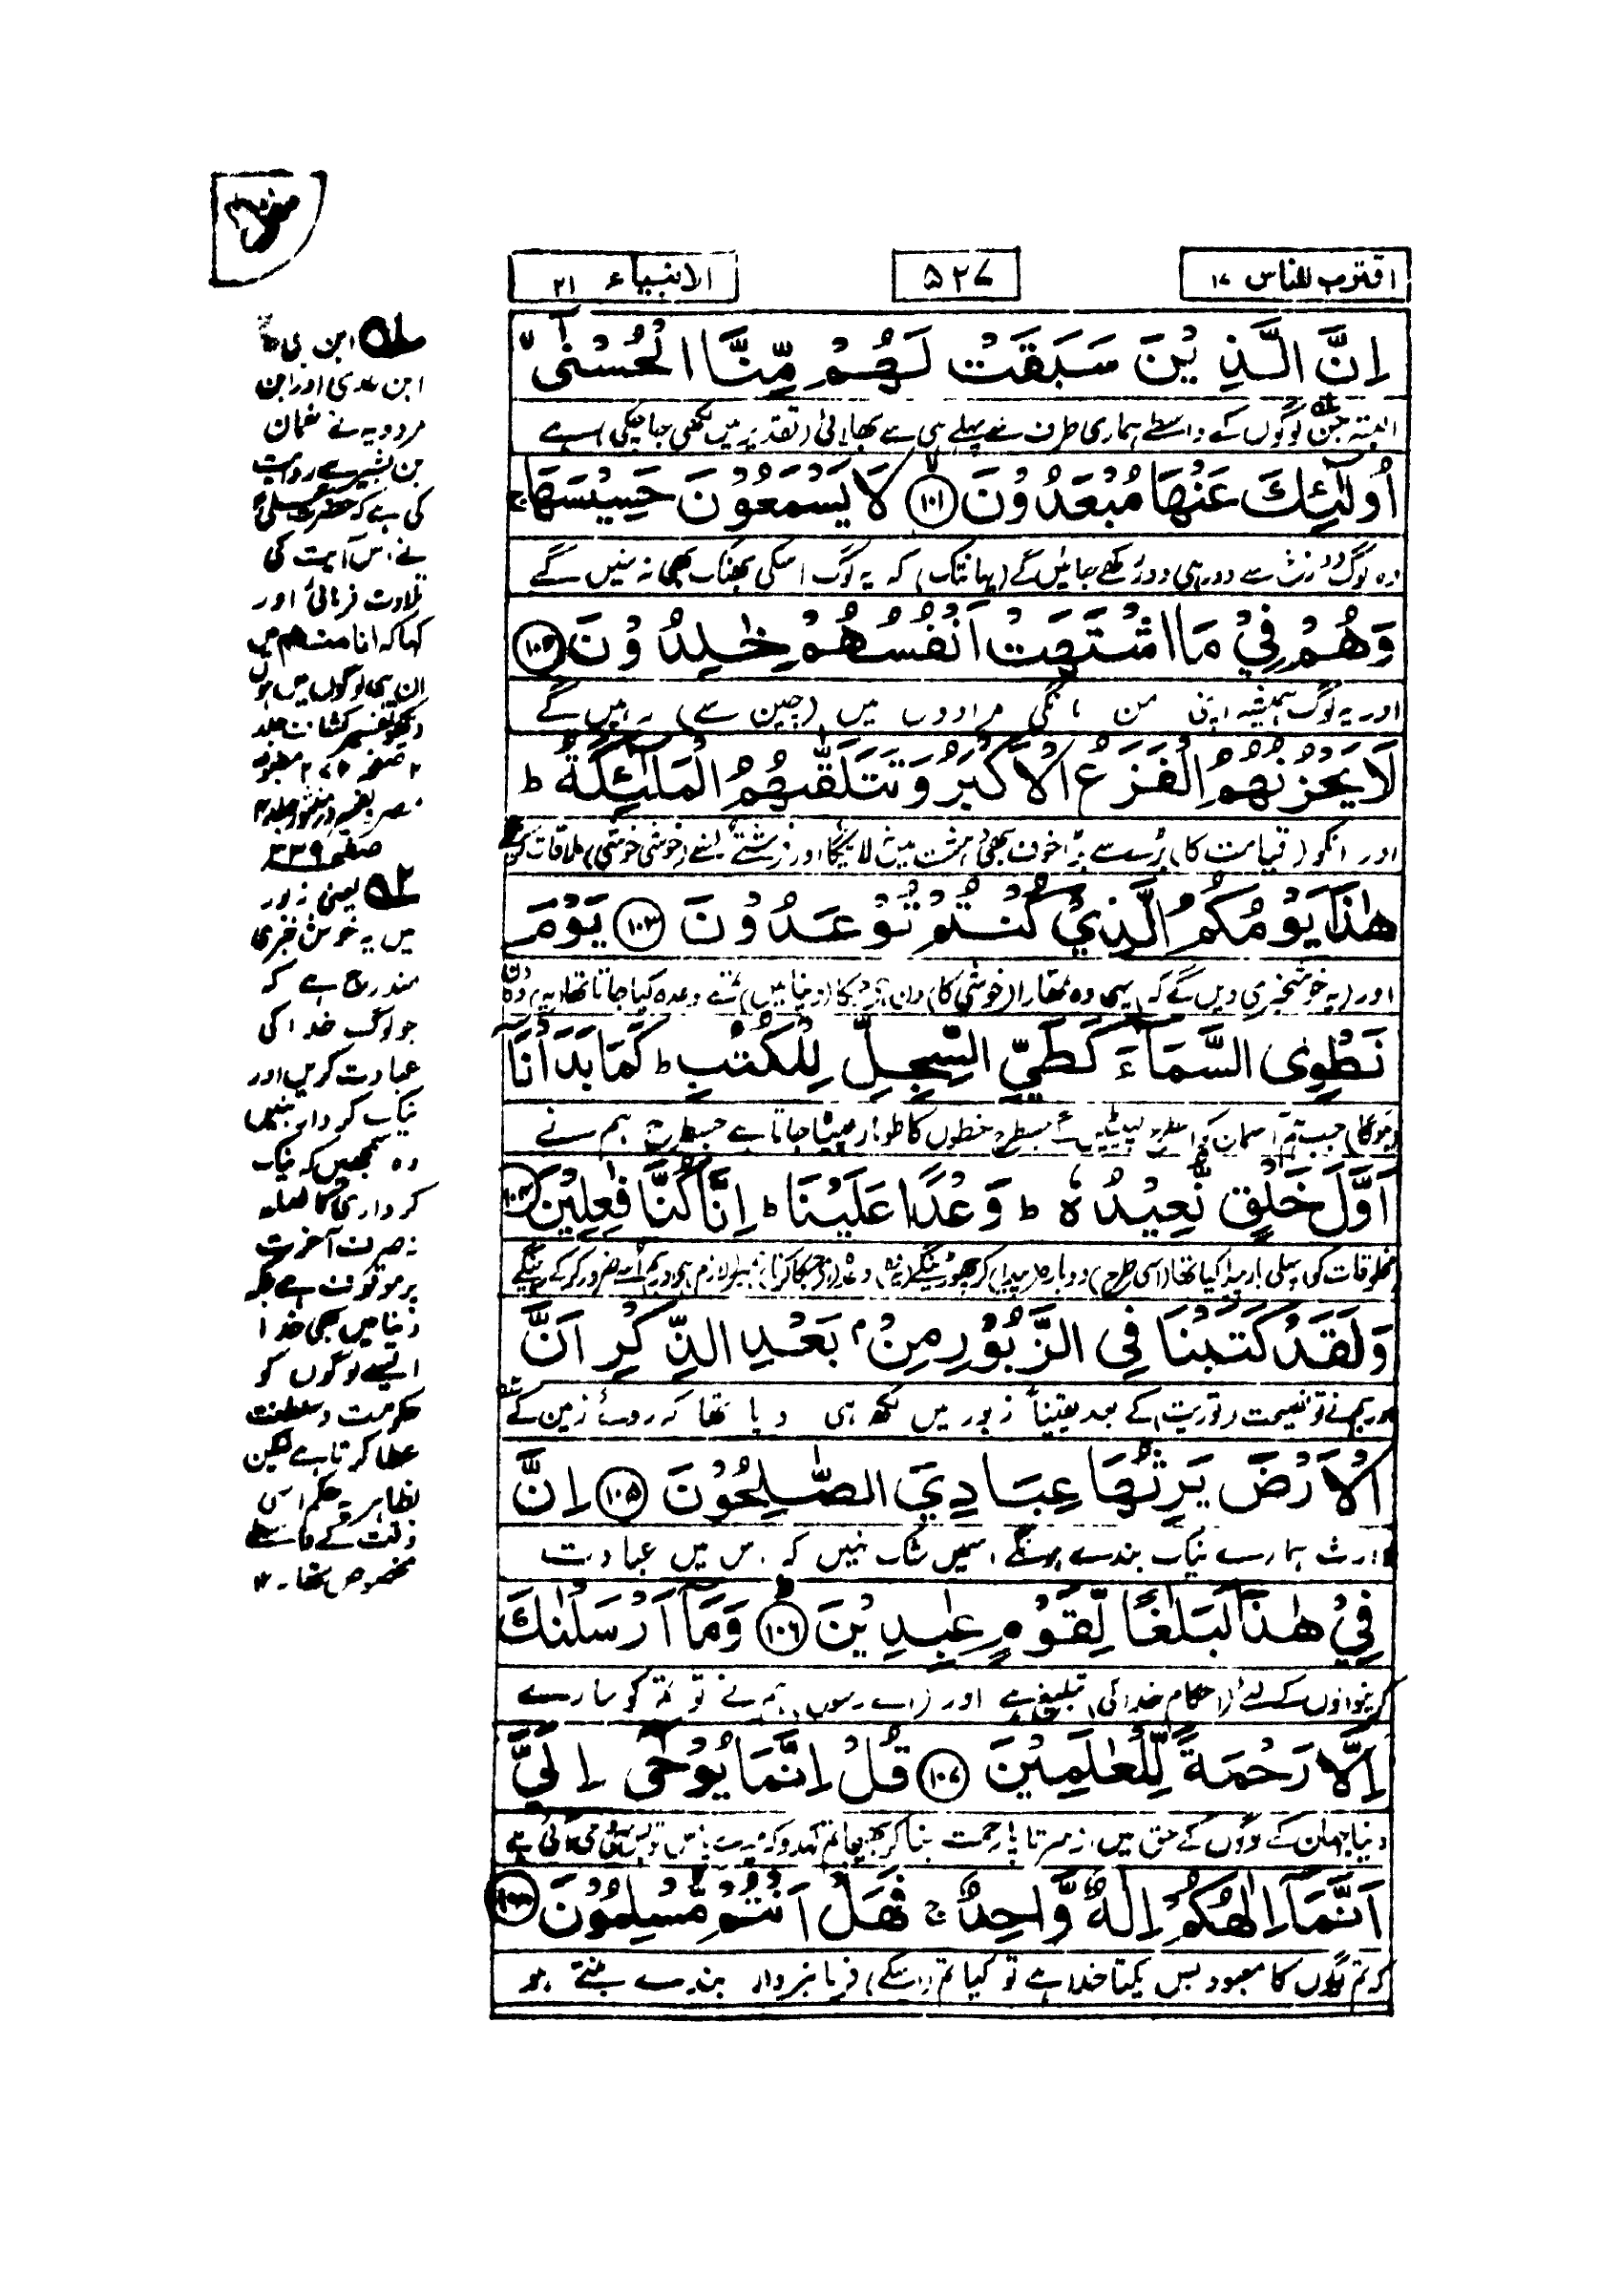 اقترب للناس ۱۷
۵۲۷
الانبیاء ۲۱
اِنَّ الَّذِیْنَ سَبَقَتْ لَهُمْ مِّنَّا الْحُسْنٰۤی ۙ
البتہ جن لوگوں کے واسطے ہماری طرف سے پہلے ہی سے بھلائی (تقدیر میں لکھی جا چکی) ہے
اُولٰٓئِكَ عَنْهَا مُبْعَدُوْنَ ﴿۱۰۱﴾ ۙ لَا یَسْمَعُوْنَ حَسِیْسَهَا ۚ
وہ لوگ دوزخ سے دور ہی دور رکھے جائیں گے (یہانتک) کہ یہ لوگ اسکی بھنک بھی نہ سنیں گے
وَهُمْ فِیْ مَا اشْتَهَتْ اَنْفُسُهُمْ خٰلِدُوْنَ ﴿۱۰۲﴾
اور یہ لوگ ہمیشہ اپنی من مانگی مرادوں میں (چین سے) رہیں گے
لَا یَحْزُنُهُمُ الْفَزَعُ الْاَكْبَرُ وَتَتَلَقّٰىهُمُ الْمَلٰٓئِكَةُ ؕ
اور انکو (قیامت کا) بڑے سے بڑا خوف بھی دہشت میں نہ لائیگا اور فرشتے ان سے (خوشی خوشی) ملاقات کریں
هٰذَا یَوْمُكُمُ الَّذِیْ كُنْتُمْ تُوْعَدُوْنَ ﴿۱۰۳﴾ یَوْمَ
اور (یہ خوشخبری دیں گے کہ) یہی وہ تمھارا (خوشی کا) دن ہے جسکا (دنیا میں) تم سے وعدہ کیا جاتا تھا (یہ) وہ دن
نَطْوِی السَّمَآءَ كَطَیِّ السِّجِلِّ لِلْكُتُبِ ؕ كَمَا بَدَاْنَاۤ
ہوگا) جب ہم آسمان کو اسطرح لپیٹیں گے جسطرح خطوں کا طومار لپیٹا جاتا ہے جسطرح ہم نے
اَوَّلَ خَلْقٍ نُّعِیْدُهٗ ؕ وَعْدًا عَلَیْنَا ؕ اِنَّا كُنَّا فٰعِلِیْنَ ﴿۱۰۴﴾
مخلوقات کو پہلی بار پیدا کیا تھا (اسی طرح) دوبارہ (پیدا) کر چھوڑینگے (یہ وہ) وعدہ (ہے جسکا کرنا) ہم پر لازم ہے اور ہم اسے ضرور کر کے رہینگے
وَلَقَدْ كَتَبْنَا فِی الزَّبُوْرِ مِنْۢ بَعْدِ الذِّكْرِ اَنَّ
اور ہم نے تو نصیحت (توریت) کے بعد یقیناً زبور میں لکھ ہی دیا تھا کہ روئے زمین کے
الْاَرْضَ یَرِثُهَا عِبَادِیَ الصّٰلِحُوْنَ ﴿۱۰۵﴾ اِنَّ
وارث ہمارے نیک بندے ہونگے اسمیں شک نہیں کہ اس میں عبادت
فِیْ هٰذَا لَبَلٰغًا لِّقَوْمٍ عٰبِدِیْنَ ﴿۱۰۶﴾ وَمَاۤ اَرْسَلْنٰكَ
کرنیوالوں کے لئے (احکام خدا کی) تبلیغ ہے اور (اے رسول) ہم نے تو تم کو سارے
اِلَّا رَحْمَةً لِّلْعٰلَمِیْنَ ﴿۱۰۷﴾ قُلْ اِنَّمَا یُوْحٰۤی اِلَیَّ
دنیا جہان کے لوگوں کے حق میں از سر تا پا رحمت بنا کر بھیجا تم کہدو کہ میرے پاس تو بس یہی وحی آئی ہے
اَنَّمَاۤ اِلٰهُكُمْ اِلٰهٌ وَّاحِدٌ ۚ فَهَلْ اَنْتُمْ مُّسْلِمُوْنَ ﴿۱۰۸﴾
کہ تم لوگوں کا معبود بس یکتا خدا ہے تو کیا تم (اسکے) فرمانبردار بندے بنتے ہو
ف۱ ابن ابی
ابن عدی اور ابن
مردویہ نے نعمان
بن بشیر سے روایت
کی ہے کہ حضرت علیؑ
نے اس آیت کی
تلاوت فرمائی اور
کہا کہ انا منهم میں
ان ہی لوگوں میں ہوں
دیکھو تفسیر کشاف جلد
۲ صفحہ مطبوعہ
مصر تفسیر درمنثور جلد ۴
صفحہ ۳۳۹
ف۲ یعنی زبور
میں یہ خوش خبری
مندرج ہے کہ
جو لوگ خدا کی
عبادت کریں اور
نیک کردار بنیں
وہ سمجھیں کہ نیک
کرداری کا صلہ
نہ صرف آخرت
پر موقوف ہے بلکہ
دنیا میں بھی خدا
ایسے لوگوں کو
حکومت و سلطنت
عطا کرتا ہے لیکن
بظاہر یہ حکم اسی
وقت کے واسطے
مخصوص تھا۔ ۱۲